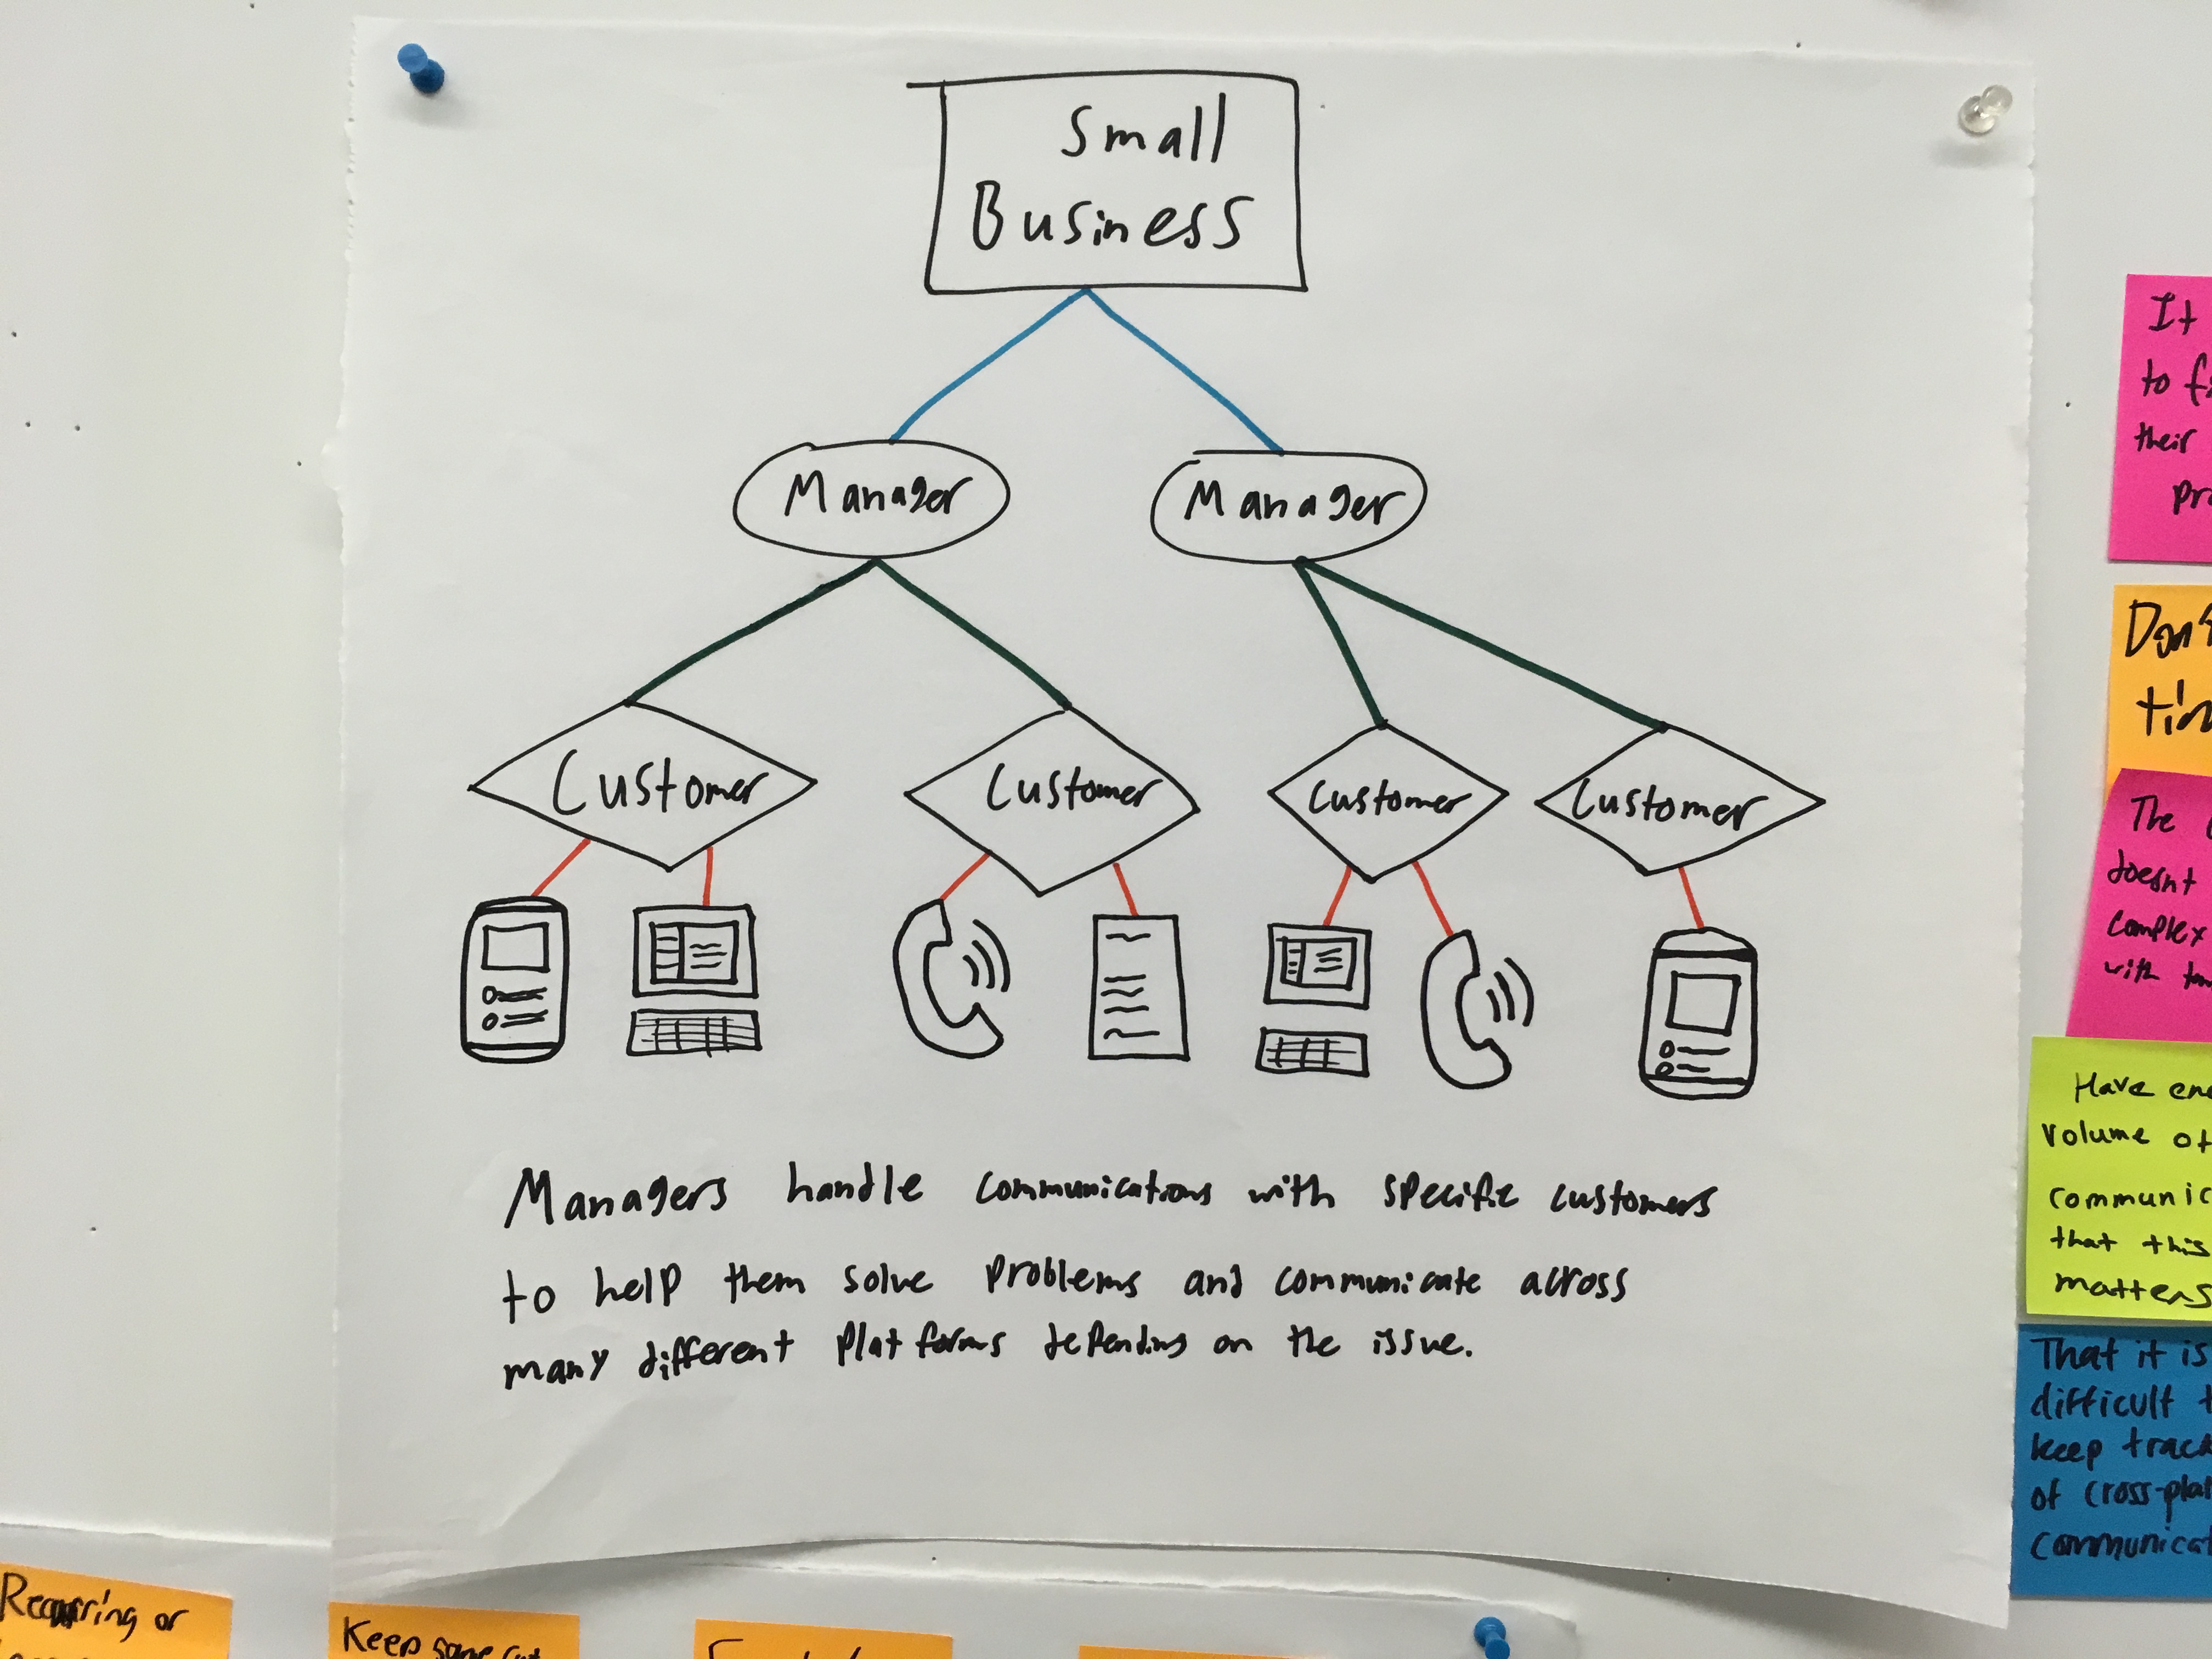 Small
Business
Manager
Manager
Customer
Customer
Customer
Customer
Managers handle communications with specific customers
to help them solve problems and communicate across
many different platforms depending on the issue.
It
to
their
Don't
The
doesnt
complex
with
Have
volume of
communic
that this
matters
That it is
difficult t
keep track
of cross-plat
communicat
Recurring or
Keep some